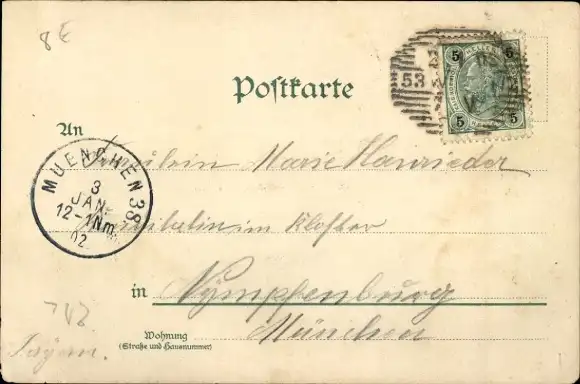 8 €
53
5 5
5 5
Postkarte
An
Fräulein Marie Hanrieder
MUENCHEN 38
3
JAN.
12-1Nm.
02
im Kloster
in Nymphenburg
München
Wohnung
(Straße und Hausnummer)
Bayern.